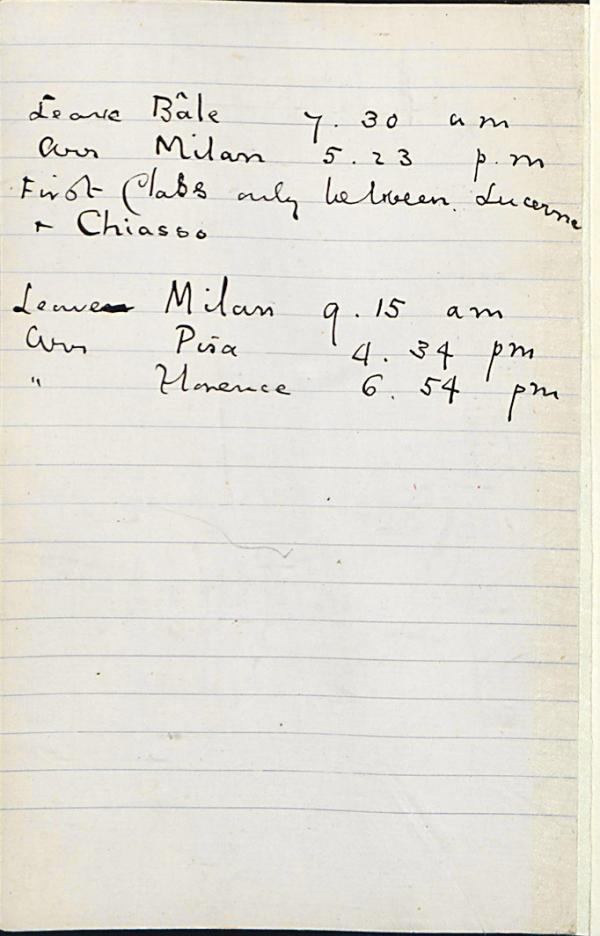 Leave Bâle 7.30 am
Arr Milan 5.23 p.m
First Class only between Lucerne
+ Chiasso
Leave Milan 9.15 am
Arr Pisa 4.34 pm
" Florence 6.54 pm